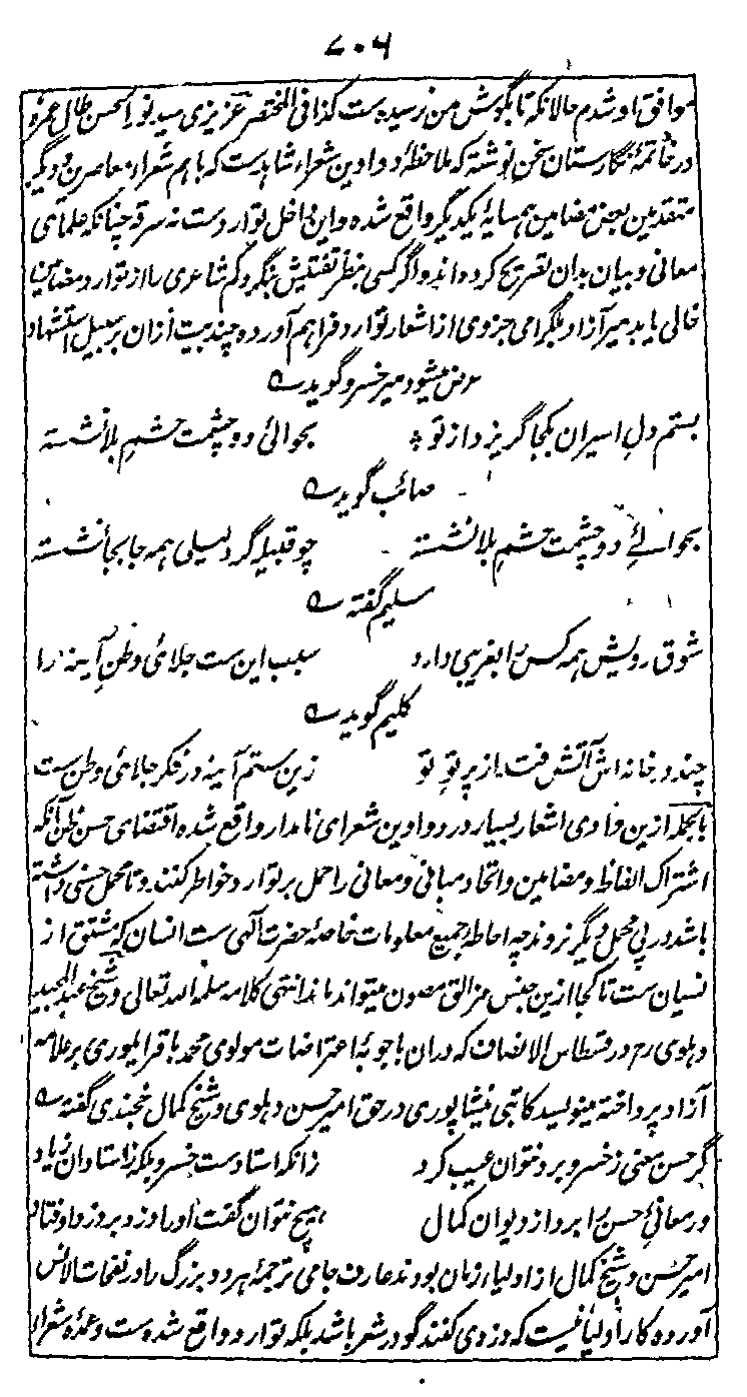 ۷۰۶
موافق او شدم حالانکه تا بگوش من نرسیده ست کذا فی المختصر عزیزی سید نور الحسن طال عمره
در خاتمهٔ نگارستان سخن نوشته که ملاحظهٔ دواوین شعراء شاهدست که با هم شعراء معاصرین و دیگر
متقدمین بعض مضامین همسایهٔ یکدیگر واقع شده و این داخل تواردست نه سرقه چنانکه علمای
معانی و بیان بدان تصریح کرده اند و اگر کسی بنظر تفتیش بنگرد کم شاعری را از توارد مضامین
خالی یابد میر آزاد بلگرامی جزوی از اشعار توارد فراهم آورده چند بیت ازان بر سبیل استشهاد
عرض میشود میر خسرو گوید ؎
بستم دلِ اسیران بکجا گریزد از تو بحوالئ دو چشمت حشمِ بلا نشسته
صائب گوید ؎
بحوالئے دو چشمت حشمِ بلا نشسته چو قبیله گرد لیلی همه جا بجا نشسته
سلیم گفته ؎
شوق رویش همه کس را بغریبی دارد سبب این ست جلای وطن آینه را
کلیم گوید ؎
چند در خانه اش آتش فتد از پرتو تو زین ستم آینه در فکر جلای وطن ست
بالجمله ازین وادی اشعار بسیار در دواوین شعرای نامدار واقع شده اقتضای حسن ظن آنکه
اشتراک الفاظ و مضامین و اتحاد مبانی و معانی را حمل بر توارد خواطر کنند و تا محمل حسنی داشته
باشد در پی محمل دیگر نروند چه احاطهٔ جمیع معلومات خاصهٔ حضرت آلهی ست انسان که مشتق از
نسیان ست تا کجا ازین جنس مزالق مصون میتواند ماند انتهی کلامه سلمه الله تعالی و شیخ عبد المجید
دهلوی رح در قسطاس الانصاف که دران باجوبهٔ اعتراضات مولوی محمد باقر ایلوری بر علامه
آزاد پرداخته مینویسد کاتبی نیشاپوری در حق امیر حسن دهلوی و شیخ کمال خجندی گفته ؎
گر حسن معنی ز خسرو برد نتوان عیب کرد زانکه استادست خسرو بلکه ز استادان زیاد
ور معانئ حسن را برد از دیوان کمال هیچ نتوان گفت او را دزد بر دزد اوفتاد
امیر حسن و شیخ کمال از اولیاء زمان بودند عارف جامی ترجمهٔ هر دو بزرگ را در نفحات الانس
آورده کار اولیا نیست که دزدی کنند گو در شعر باشد بلکه توارد واقع شده ست و عمدهٔ شعراء